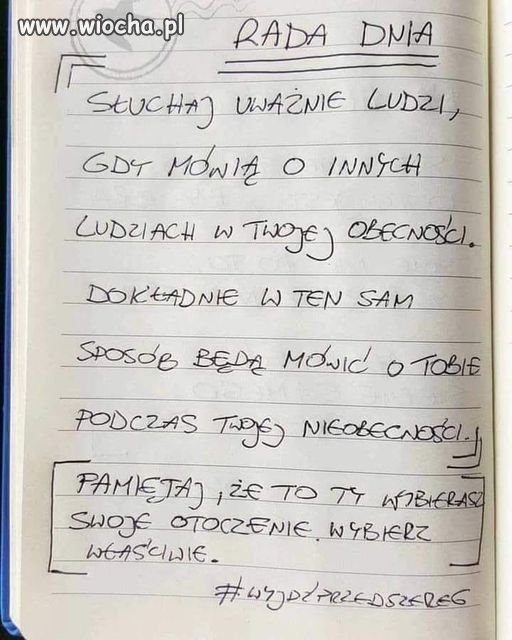 www.wiocha.pl
RADA DNIA
SŁUCHAJ UWAŻNIE LUDZI,
GDY MÓWIĄ O INNYCH
LUDZIACH W TWOJEJ OBECNOŚCI.
DOKŁADNIE W TEN SAM
SPOSÓB BĘDĄ MÓWIĆ O TOBIE
PODCZAS TWOJEJ NIEOBECNOŚCI.
PAMIĘTAJ, ŻE TO TY WYBIERASZ
SWOJE OTOCZENIE. WYBIERZ
WŁAŚCIWIE.
#WYJDŹPRZEDSZEREG